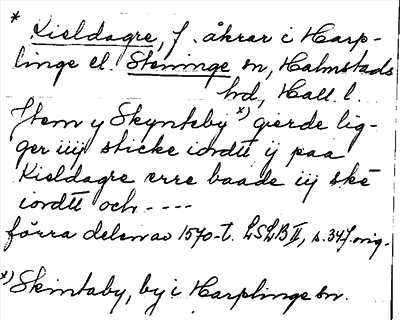 * Kieldagre, f. åkrar i Harp-
linge el. Steninge sn, Halmstads
hd, Hall. l.
Jtem y Skynteby x) gierde lig-
ger iiij sticke iordtt ij paa
Kieldagre erre baade iij ske
iordtt och ----
förra delen av 1570-t. LSLB II, s. 347. orig.
x) Skintaby, by i Harplinge sn.